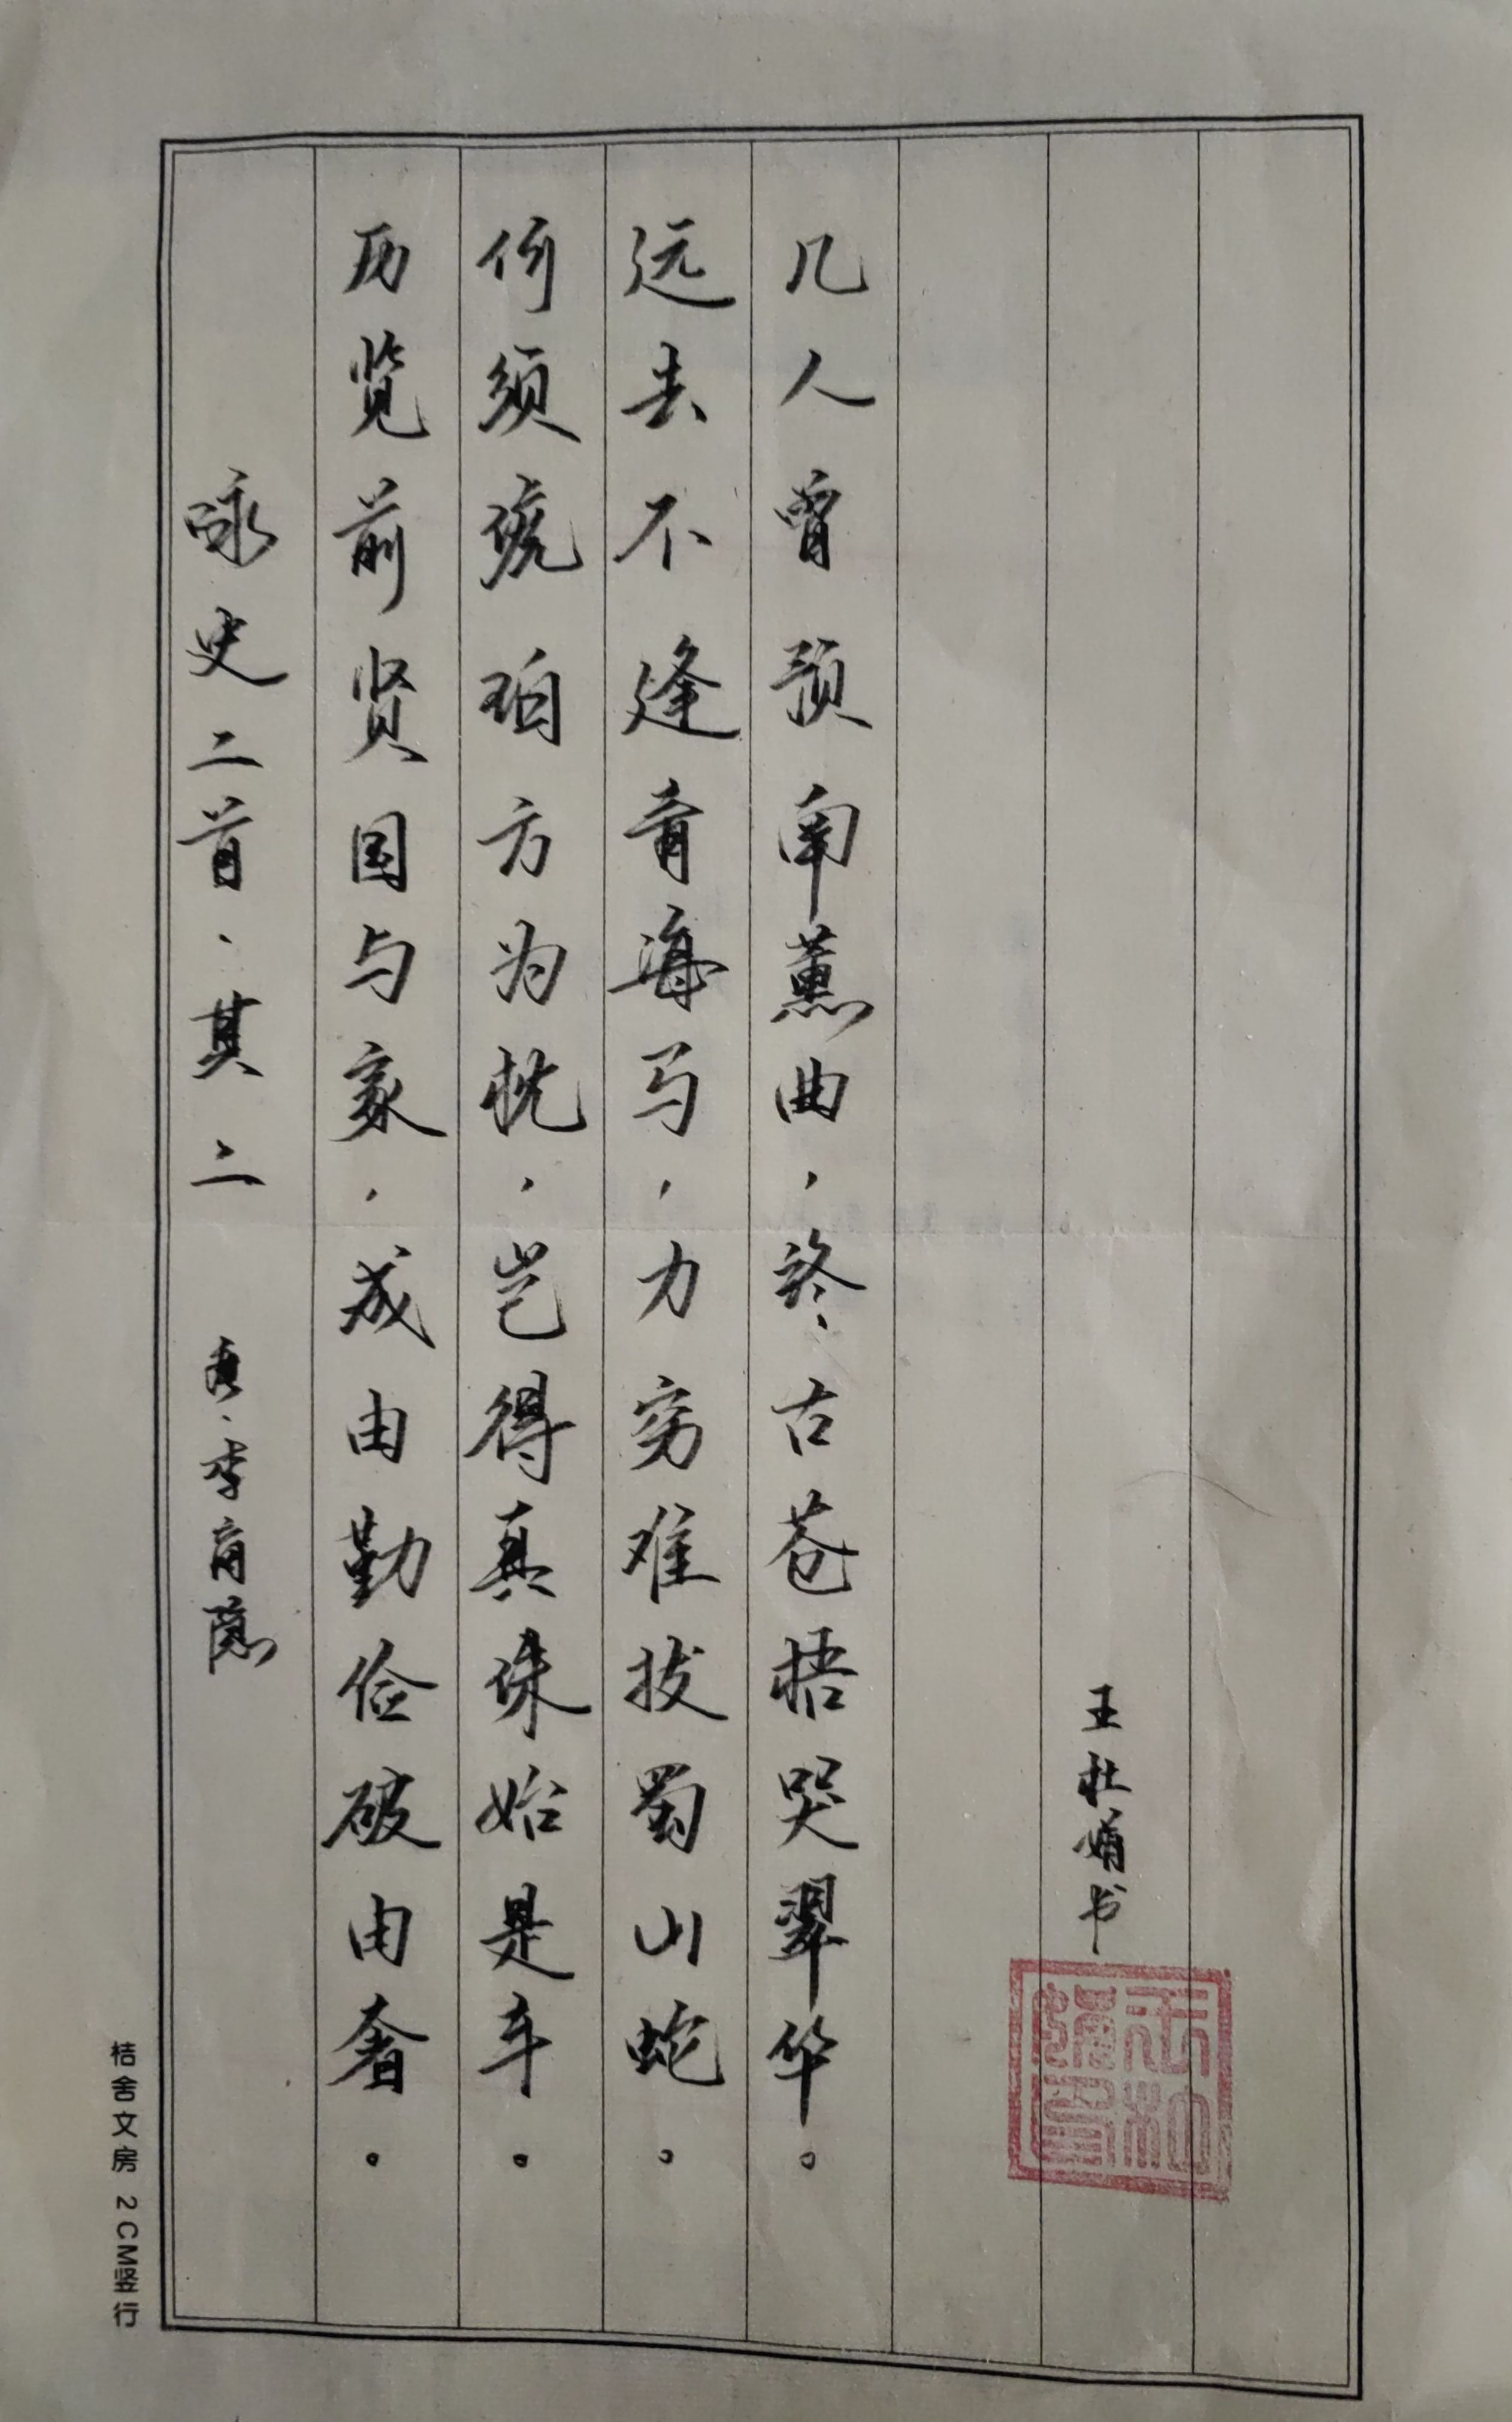 咏史二首·其二 唐·李商隐
历览前贤国与家，成由勤俭破由奢。
何须琥珀方为枕，岂得真珠始是车。
远去不逢青海马，力穷难拔蜀山蛇。
几人曾预南薰曲，终古苍梧哭翠华。
王杜娟书
桔舍文房 2CM竖行